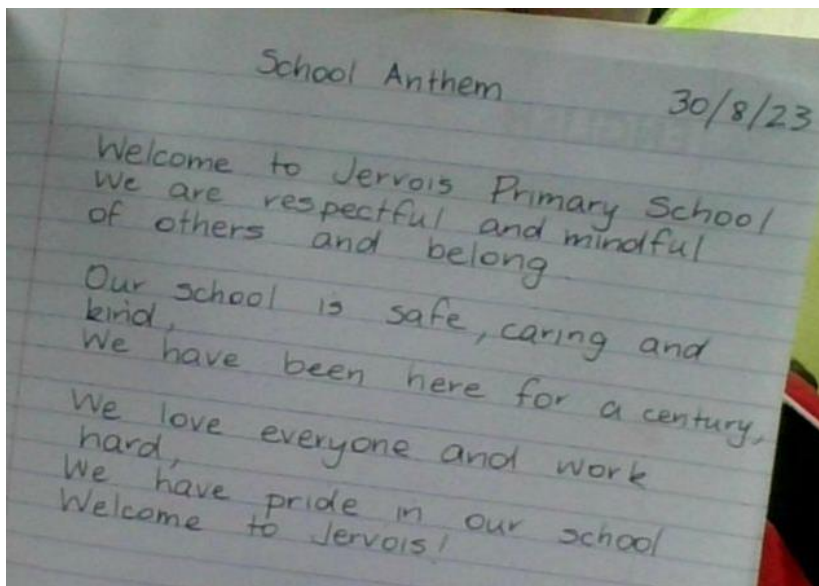 School Anthem
30/8/23
Welcome to Jervois Primary School
We are respectful and mindful
of others and belong.
Our school is safe, caring and
kind,
We have been here for a century,
We love everyone and work
hard,
We have pride in our school
Welcome to Jervois!